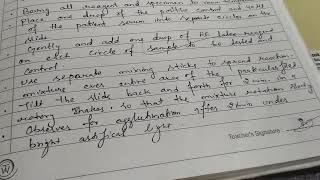 Bring all reagent and specimen to room temp
Place one drop of the positive control and 40 ul
of the patient serum into separate circles on the
slide
Gently and add one drop of RF latex reagent
on each circle of sample to be tested and
control.
use separate mixing sticks to spread reaction
mixture over entire area of the particular
Tilt the slide back and forth for 2 min in a
rotatory shaker so that the mixture rotation slowly
Observe for agglutination after 2 min under
bright artificial light
Teacher's Signature